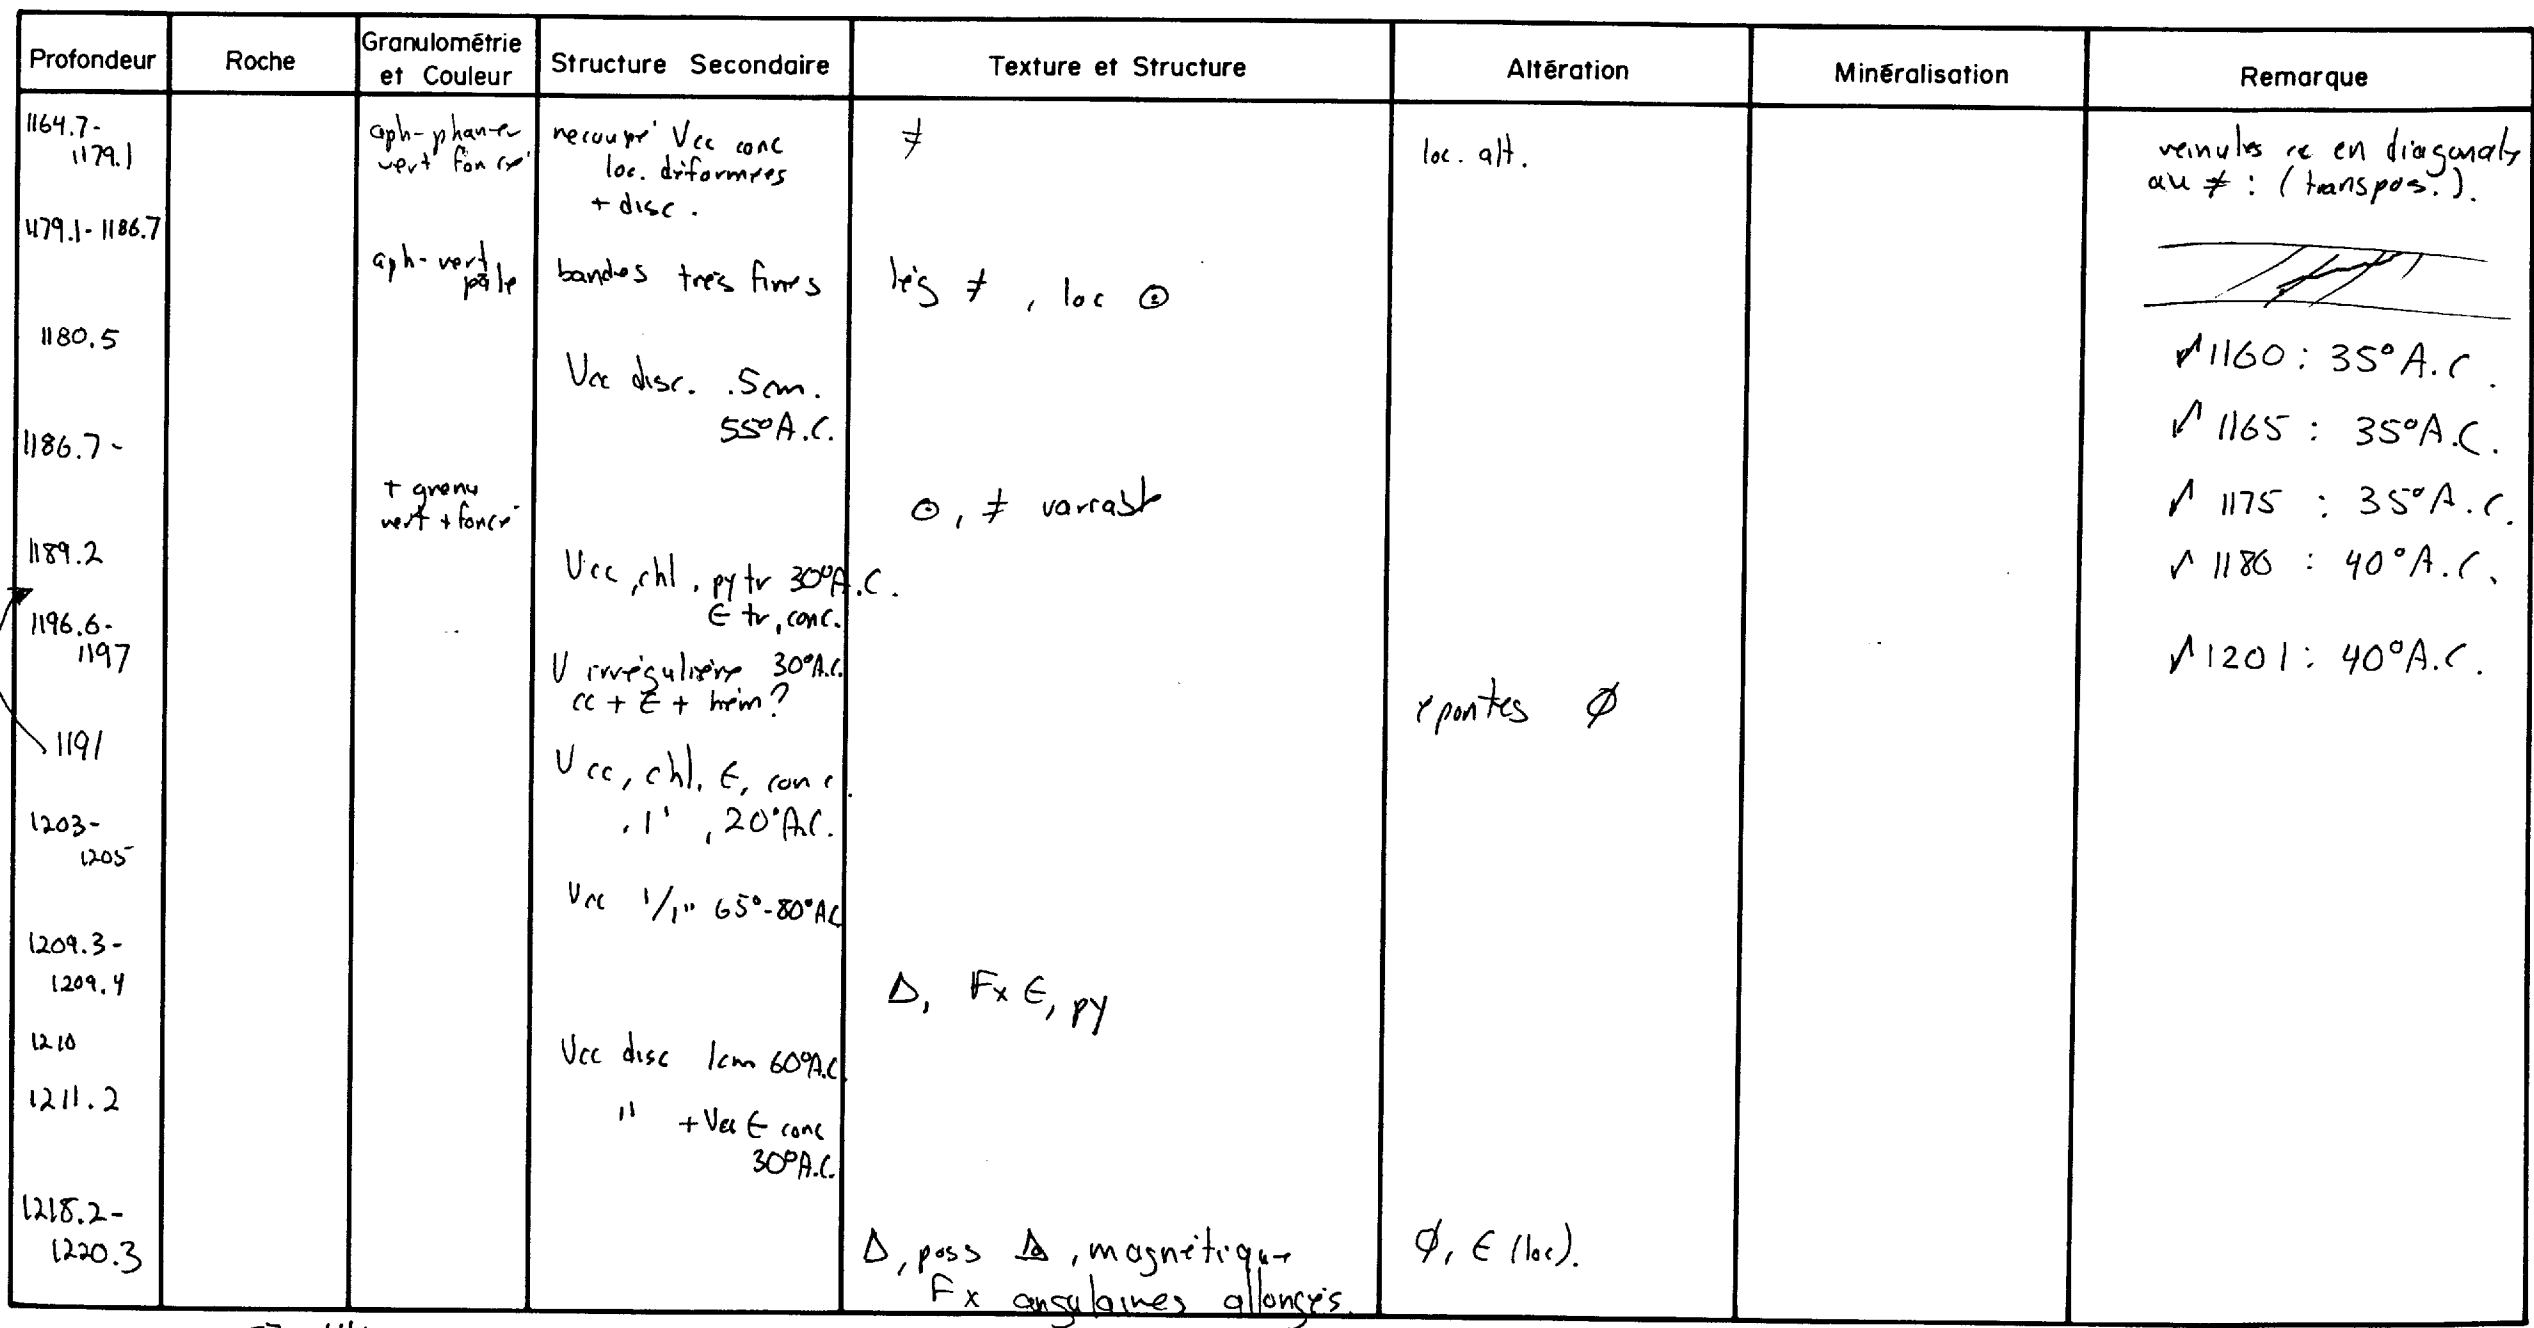 Profondeur Roche Granulométrie et Couleur Structure Secondaire Texture et Structure Altération Minéralisation Remarque
1164.7-
1179.1
aph-phan-
vert foncé
recoupé Vcc conc
loc. déformées
+ disc.
≠
loc. alt.
veinules cc en diagonale
au ≠ : (transpos.).
1179.1-1186.7
aph-vert
pâle
bandes très fines
lég ≠, loc ⊙
1180.5
Vcc disc. .5cm.
55°A.C.
✓1160 : 35°A.C.
✓1165 : 35°A.C.
1186.7-
+ grenu
vert + foncé
⊙, ≠ variable
✓1175 : 35°A.C.
1189.2
Vcc, chl, py tr 30°A.C.
∈ tr, conc.
✓1180 : 40°A.C.
1196.6-
1197
V irrégulière 30°A.C.
cc + ∈ + hém?
épontes Ø
✓1201 : 40°A.C.
1191
Vcc, chl, ∈, conc.
.1', 20°A.C.
1203-
1205
Vcc 1/1" 65°-80°AC
1209.3-
1209.4
Δ, Fx ∈, py
1210
Vcc disc 1cm 60°A.C.
1211.2
" + Vcc ∈ conc
30°A.C.
1218.2-
1220.3
Δ, poss Δ, magnétique
Fx angulaires allongés.
Ø, ∈ (loc).